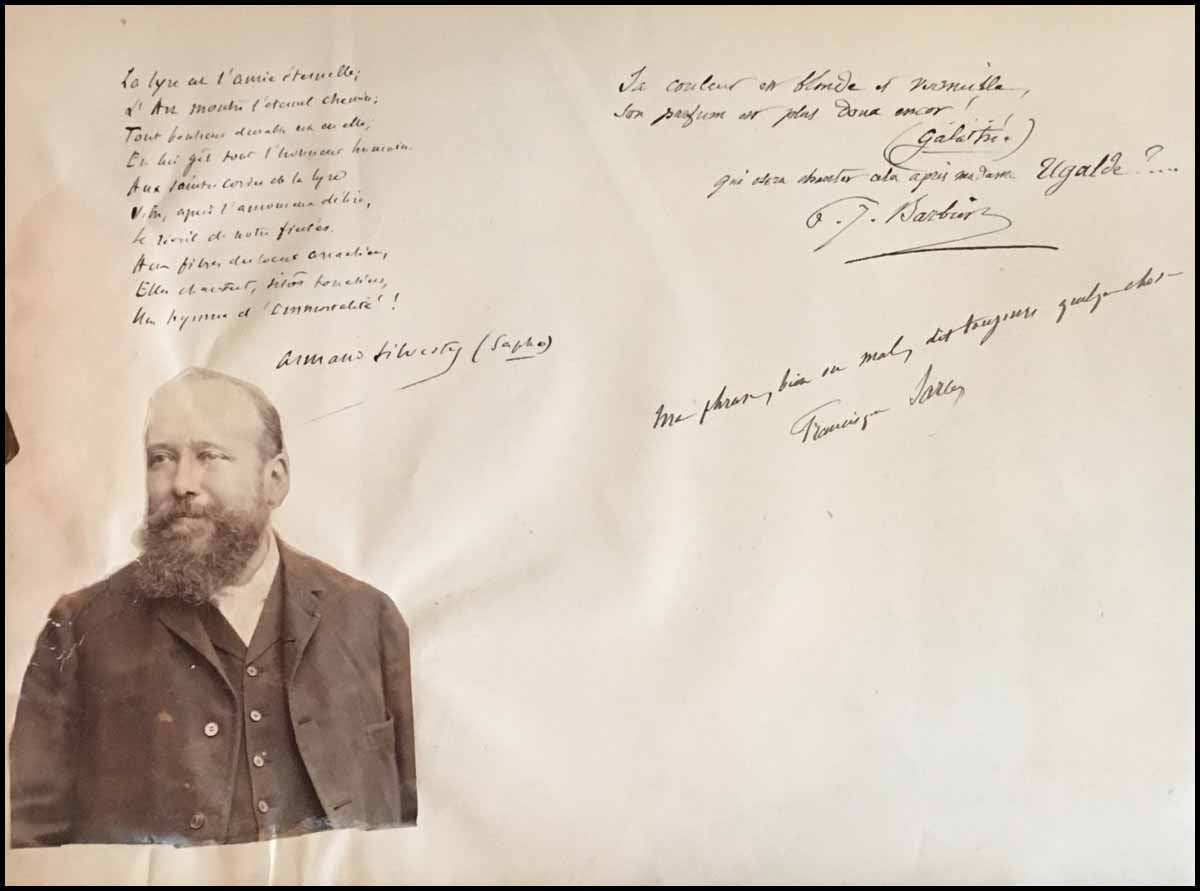 La lyre est l'amie éternelle;
L'Art montre l'éternel chemin;
Tout bonheur durable est en elle;
En lui gît tout l'honneur humain.
Aux saintes cordes de la lyre
Vibre, après l'amoureux délire,
Le réveil de notre fierté.
Aux fibres du coeur arrachées,
Elles chantent, sitôt touchées,
Un hymne d'immortalité!
Armand Silvestre (Sapho)
Sa couleur est blonde et vermeille,
Son parfum est plus doux encor!
(Galathée)
qui osera chanter cela après madame Ugalde?....
P. J. Barbier
Ma phrase, bien ou mal, dit toujours quelque chose
Francisque Sarcey